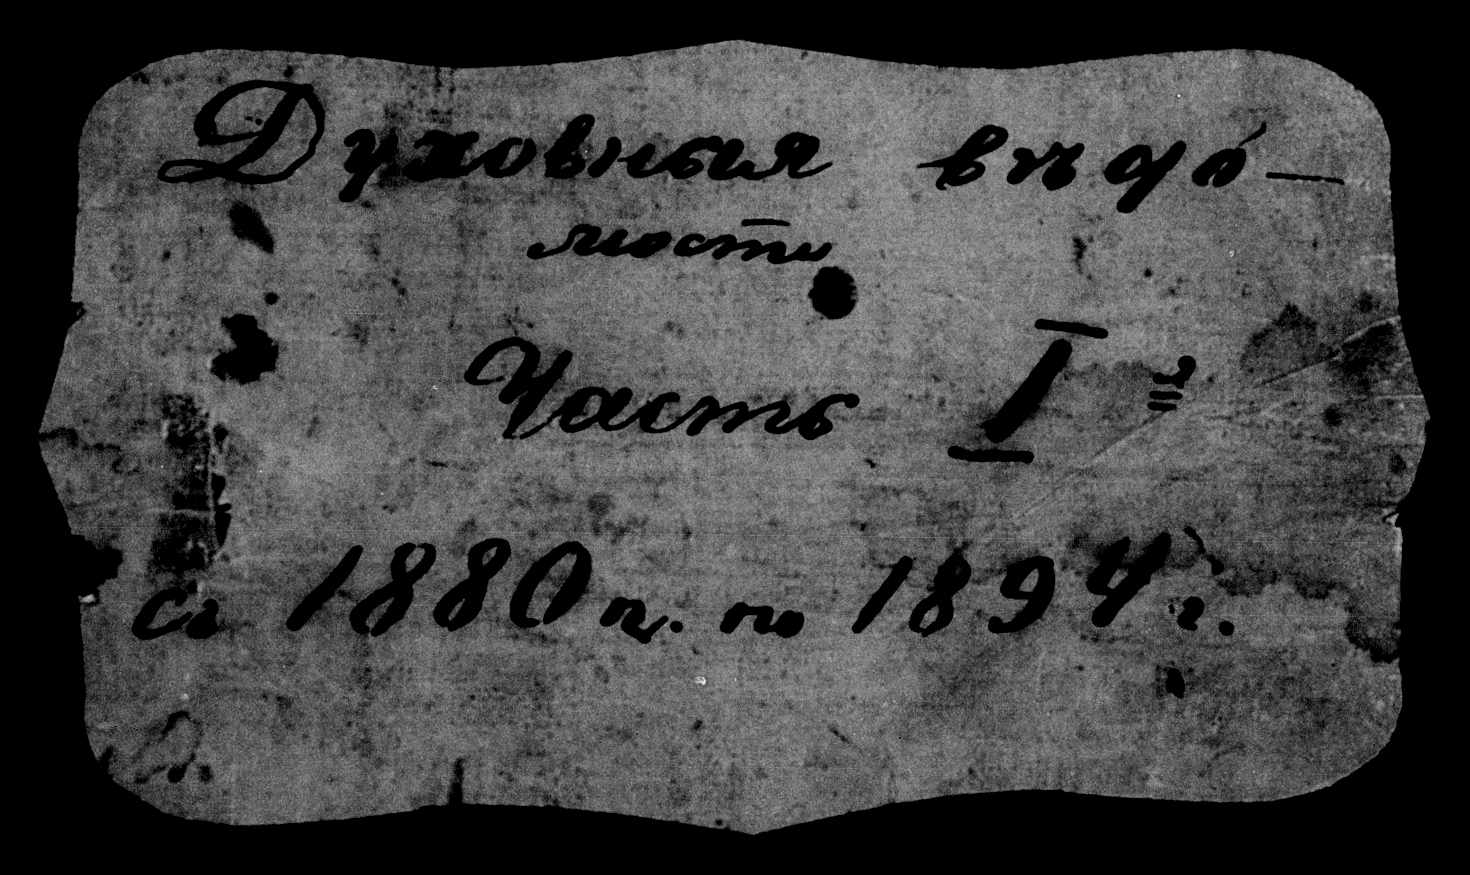 Духовныя вѣдо́-
мости
Часть I я
съ 1880 г. по 1894 г.